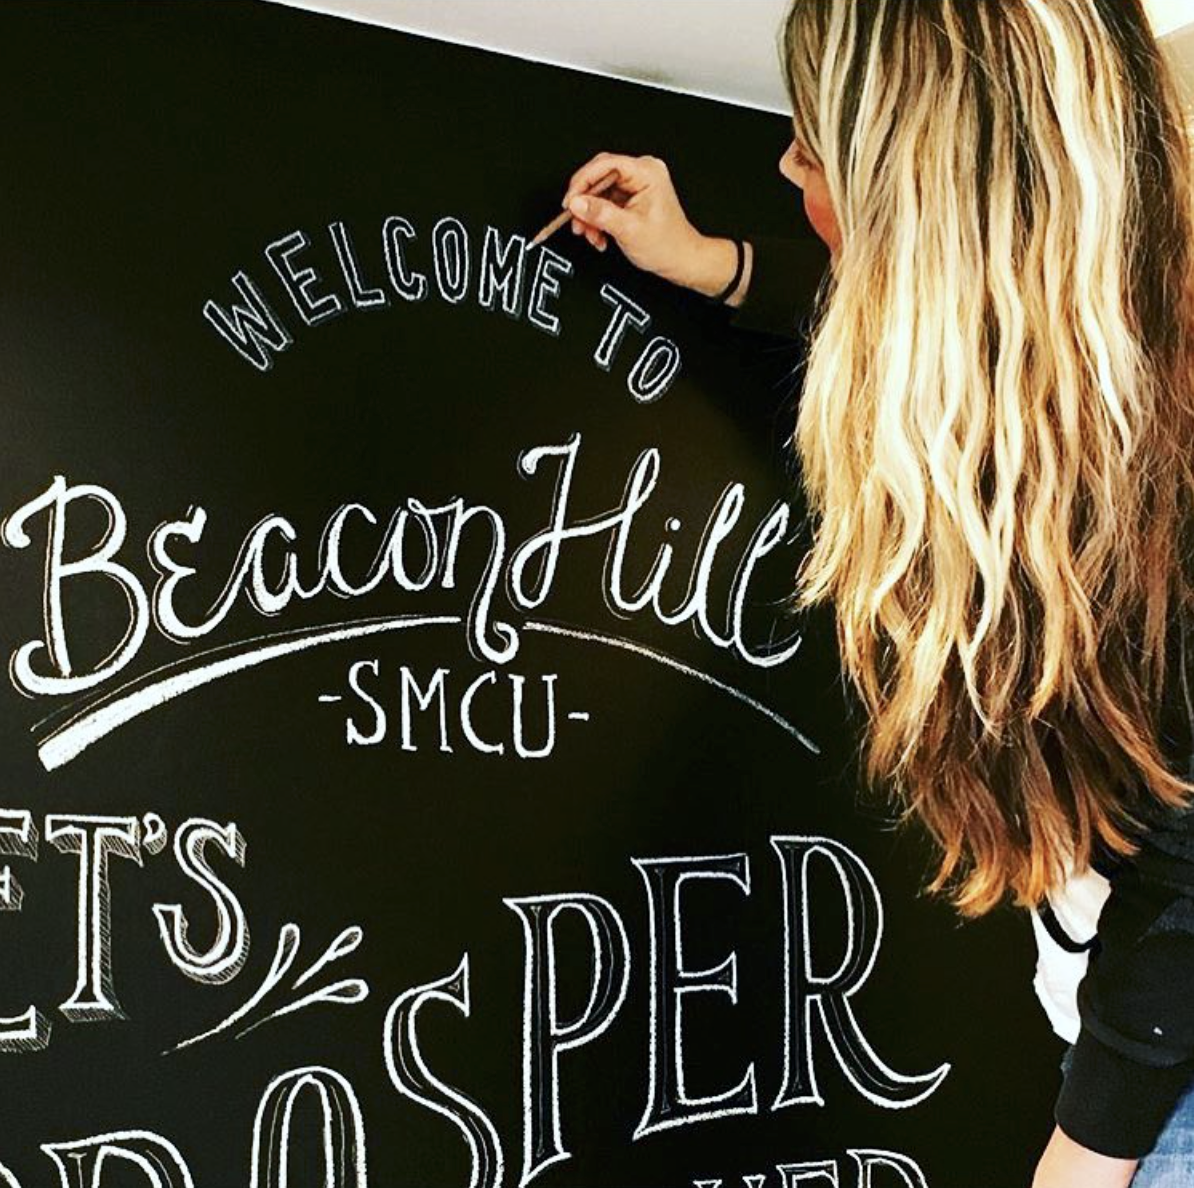 WELCOME TO
Beacon Hill
-SMCU-
ET'S
OSPER